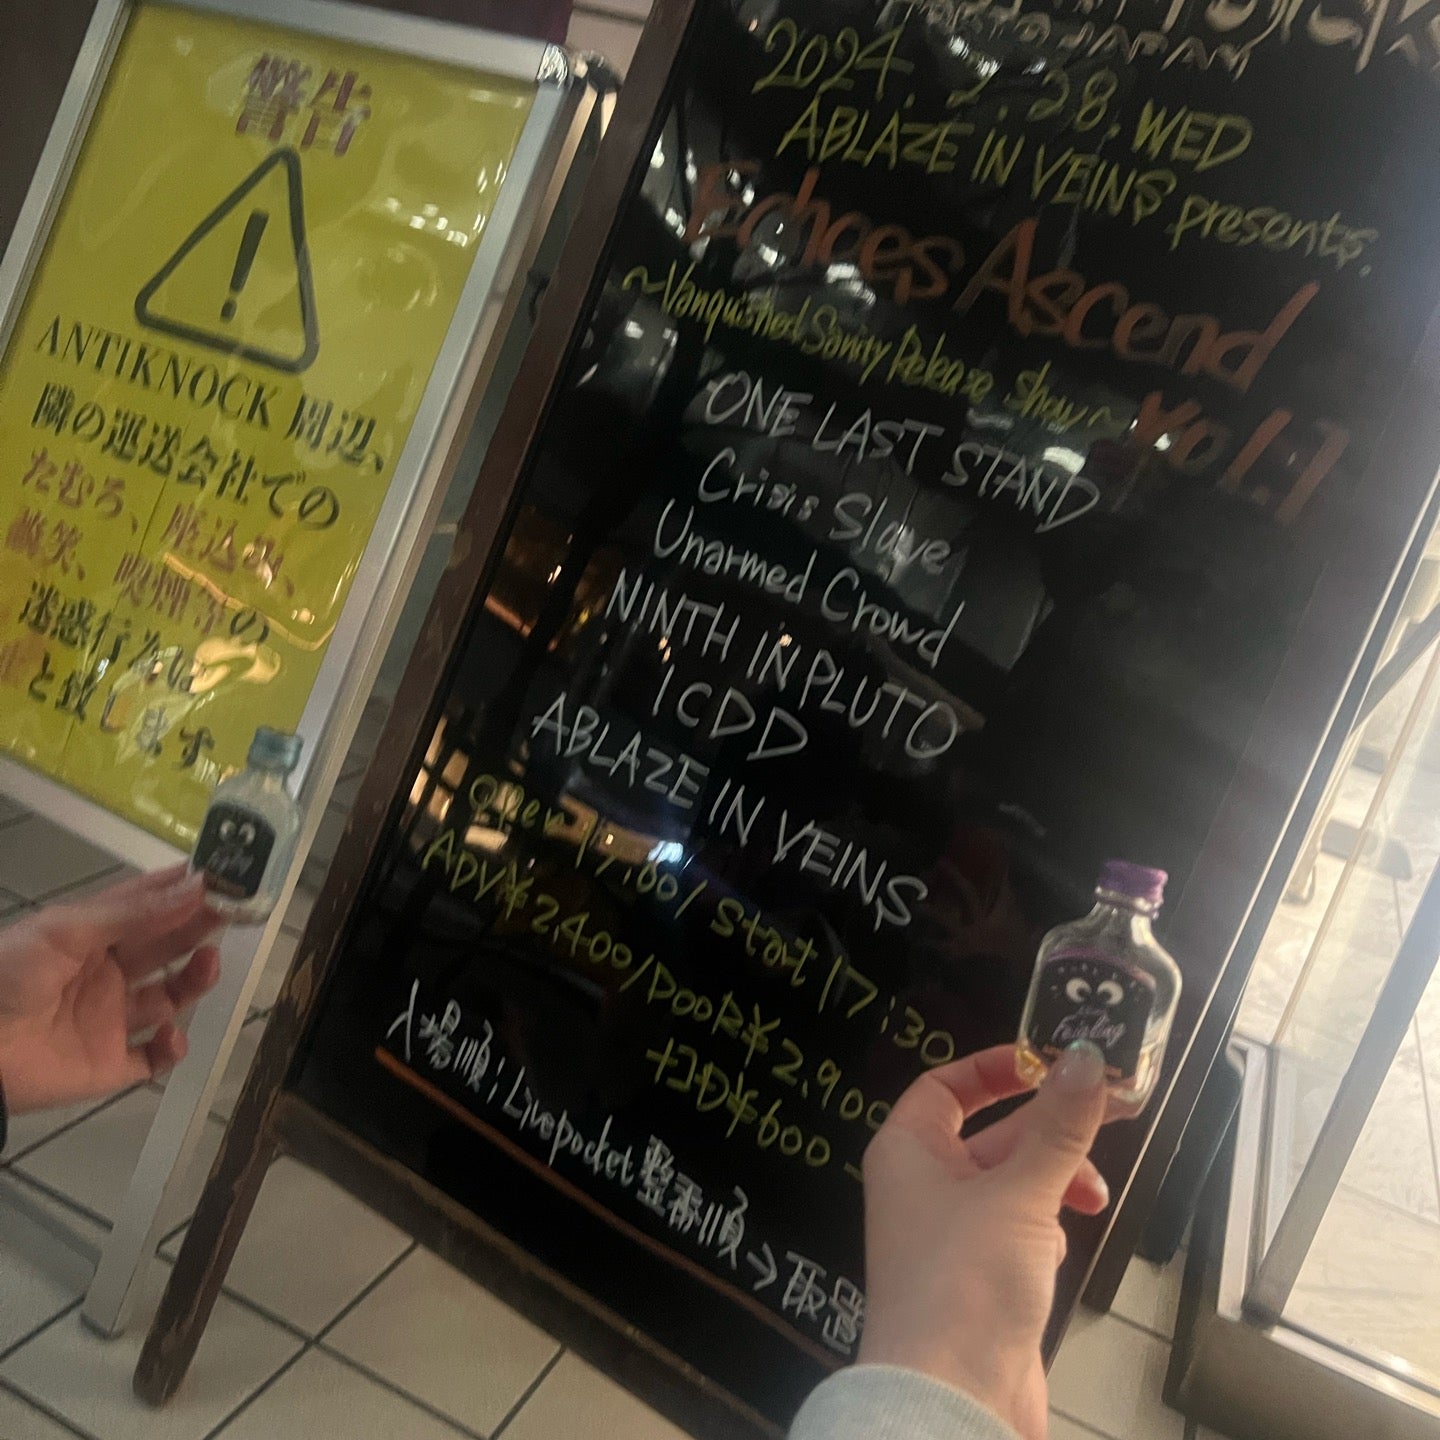 警告
ANTIKNOCK 周辺、
隣の運送会社での
たむろ、座込み、
談笑、喫煙等の
迷惑行為は
と致します
TOKYO JAPAN
2024.2.28.WED
ABLAZE IN VEINS presents.
Echoes Ascend
Vol.1
~Vanquished Sanity Release Show~
ONE LAST STAND
Crisis Slave
Unarmed Crowd
NINTH IN PLUTO
ICDD
ABLAZE IN VEINS
Open 17:00/Start 17:30
ADV¥2,400/DOOR¥2,900
+1D¥600
入場順;Livepocket整番順→取置
Feigling
Feigling